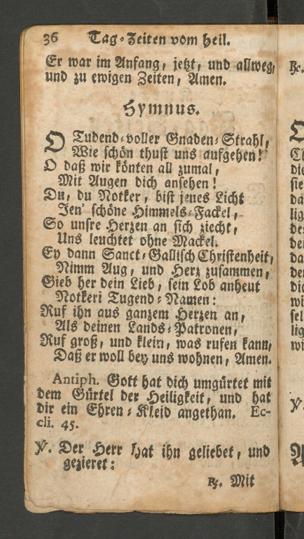 36 Tag-Zeiten vom heil.
Er war im Anfang, jetzt, und allweg,
und zu ewigen Zeiten, Amen.
Hymnus.
O Tudend-voller Gnaden-Strahl,
Wie schön thust uns aufgehen!
O daß wir könten all zumal,
Mit Augen dich ansehen!
Du, du Notker, bist jenes Licht
Jen' schöne Himmels-Fackel,
So unsre Herzen an sich ziecht,
Uns leuchtet ohne Mackel.
Ey dann Sanct-Gallisch Christenheit,
Nimm Aug, und Herz zusammen,
Gieb her dein Lieb, sein Lob anheut
Notkeri Tugend-Namen:
Ruf ihn aus ganzem Herzen an,
Als deinen Lands-Patronen,
Ruf groß, und klein, was rufen kann,
Daß er woll bey uns wohnen, Amen.
Antiph. Gott hat dich umgürtet mit
dem Gürtel der Heiligkeit, und hat
dir ein Ehren-Kleid angethan. Ec-
cli. 45.
℣. Der Herr hat ihn geliebet, und
gezieret:
℟. Mit